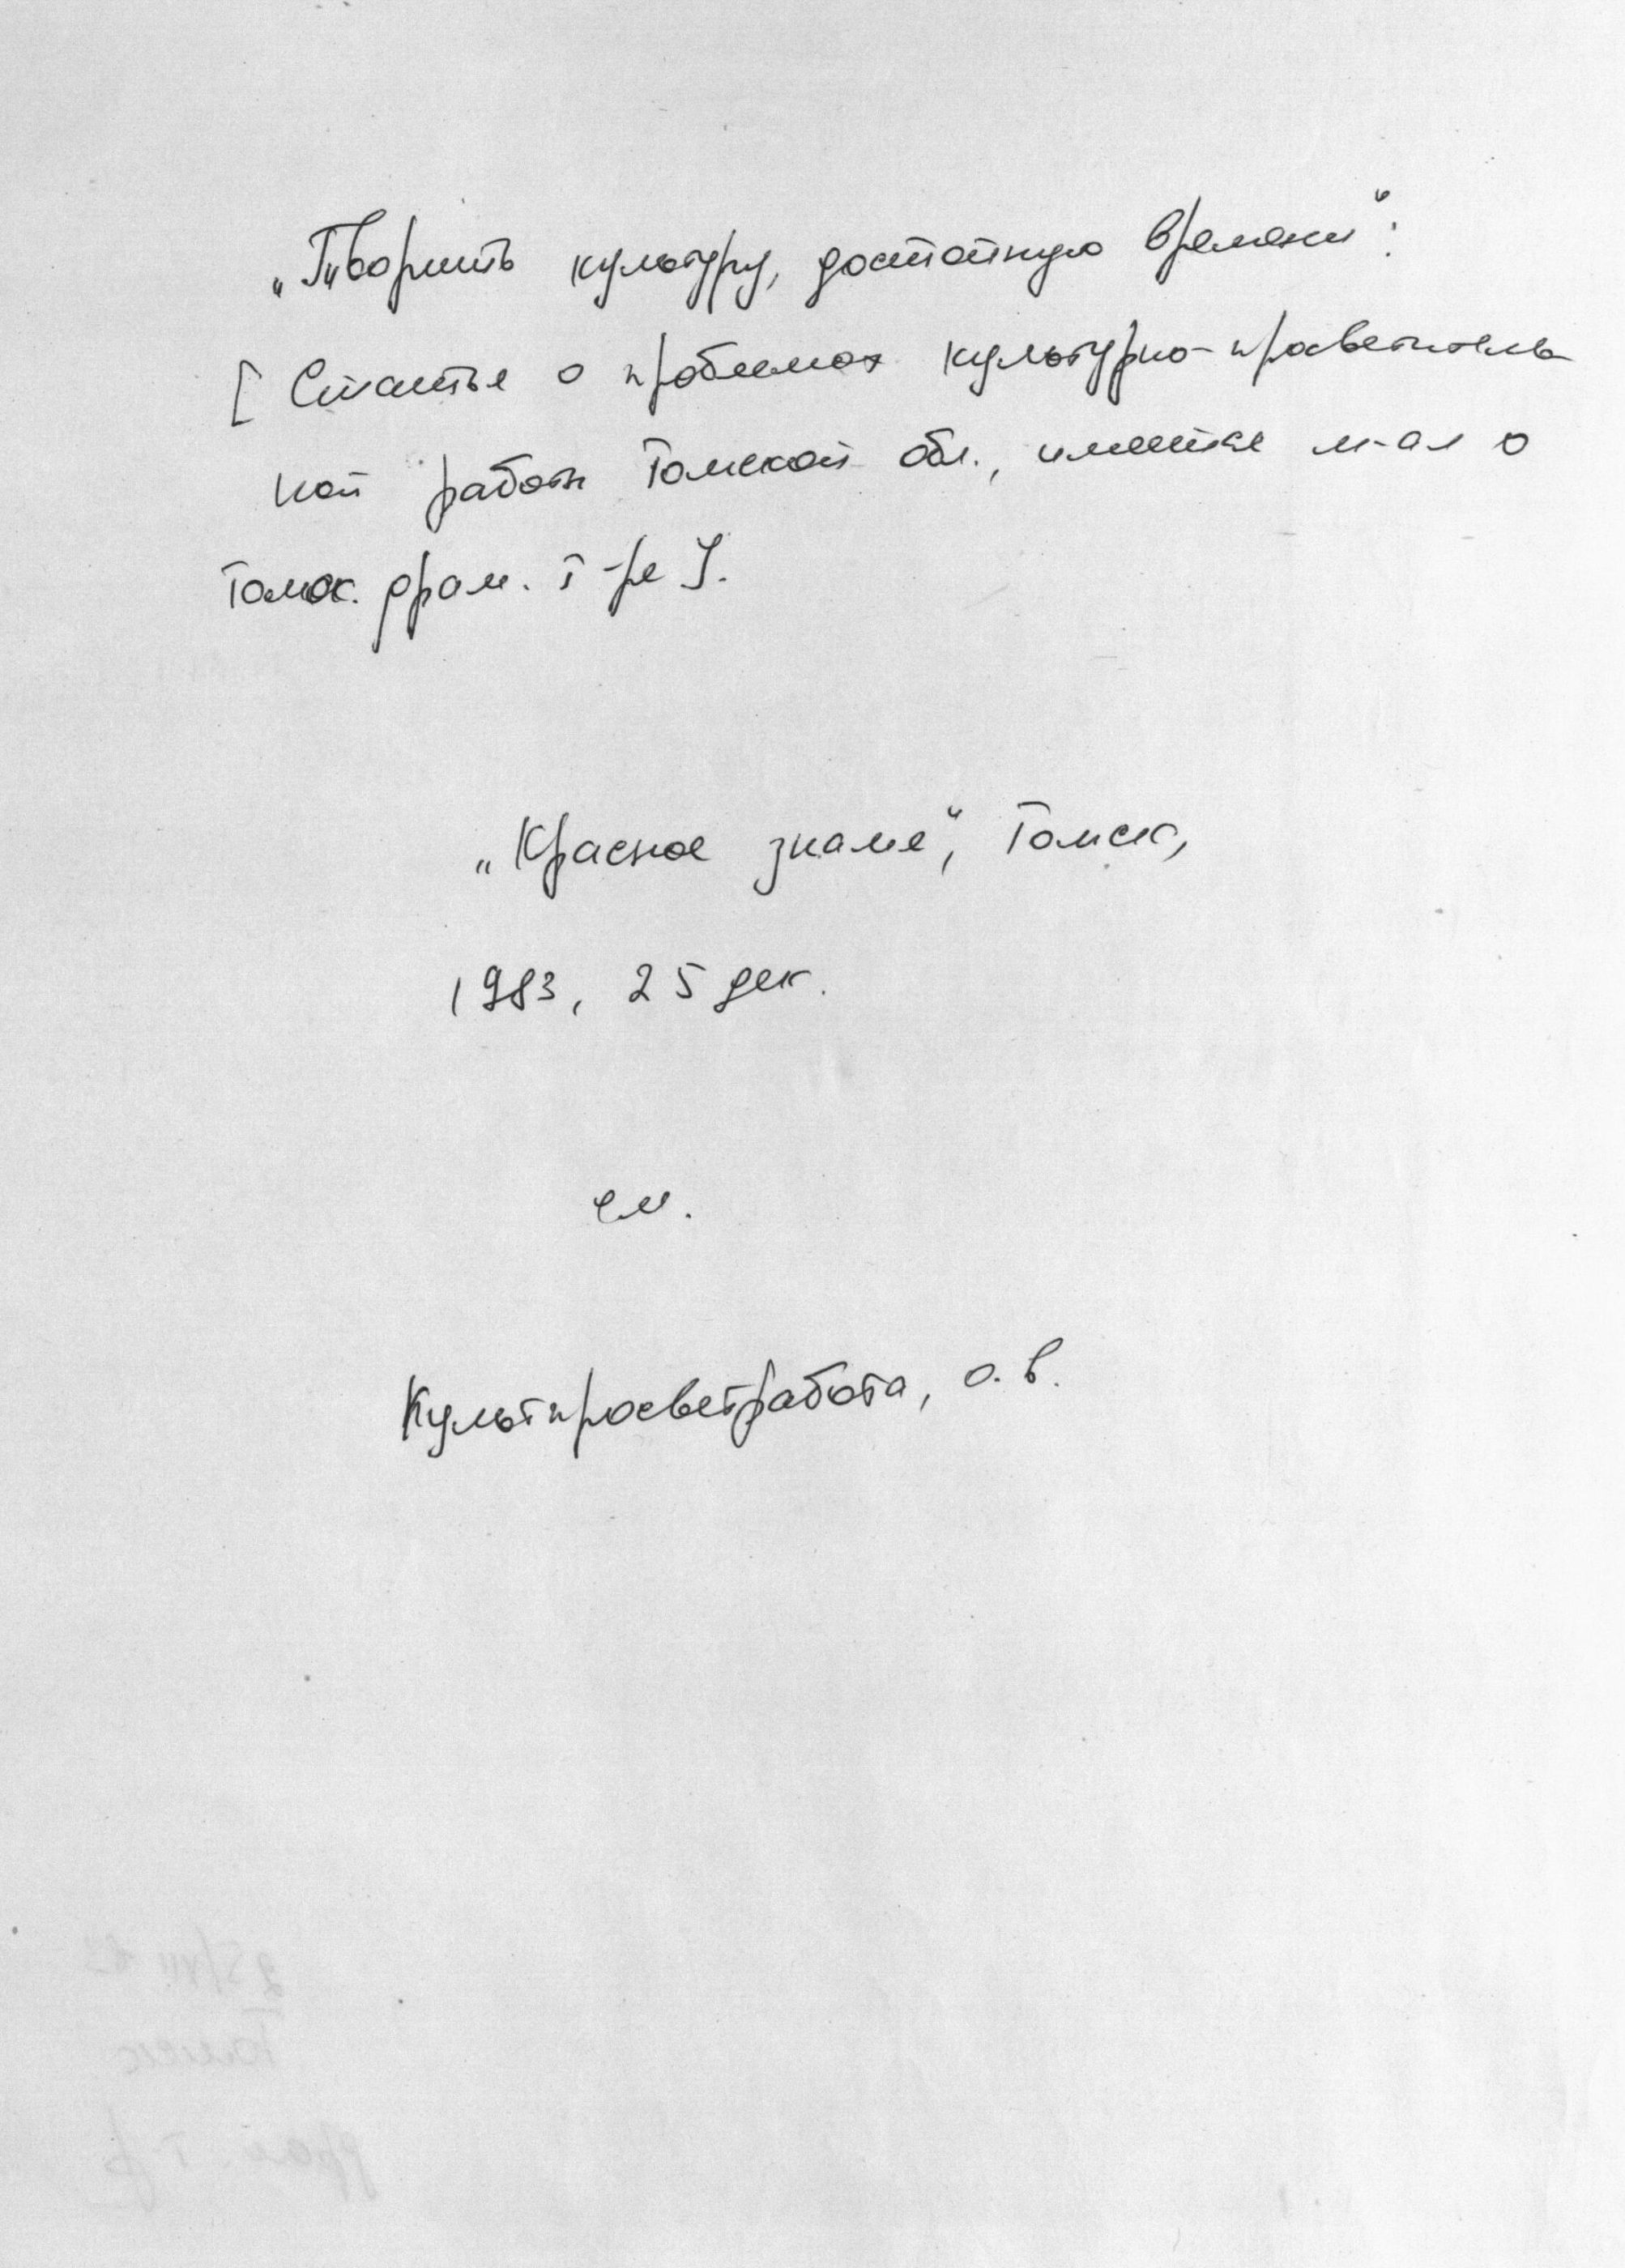 „Творить культуру, достойную времени“:
[Статья о проблемах культурно-просветитель
ной работы Томской обл., имеются м-ал о
Томск. драм. т-ре].
„Красное знамя“, Томск,
1983, 25 дек.
см.
Культпросветработа, о.в.